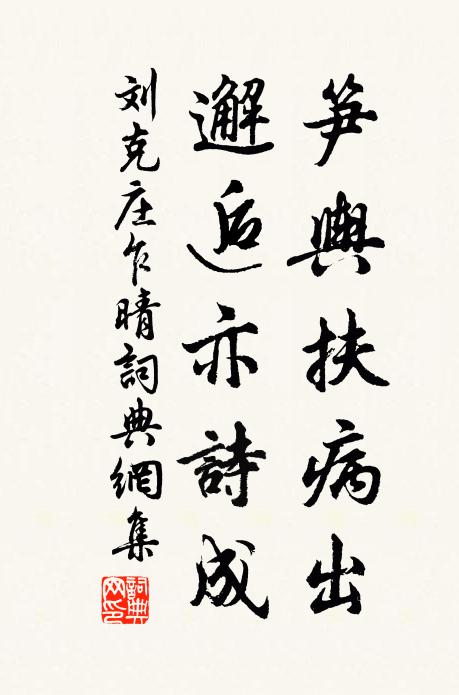 笋輿扶病出
邂逅亦詩成
刘克庄乍晴詞典網集
詞典网印